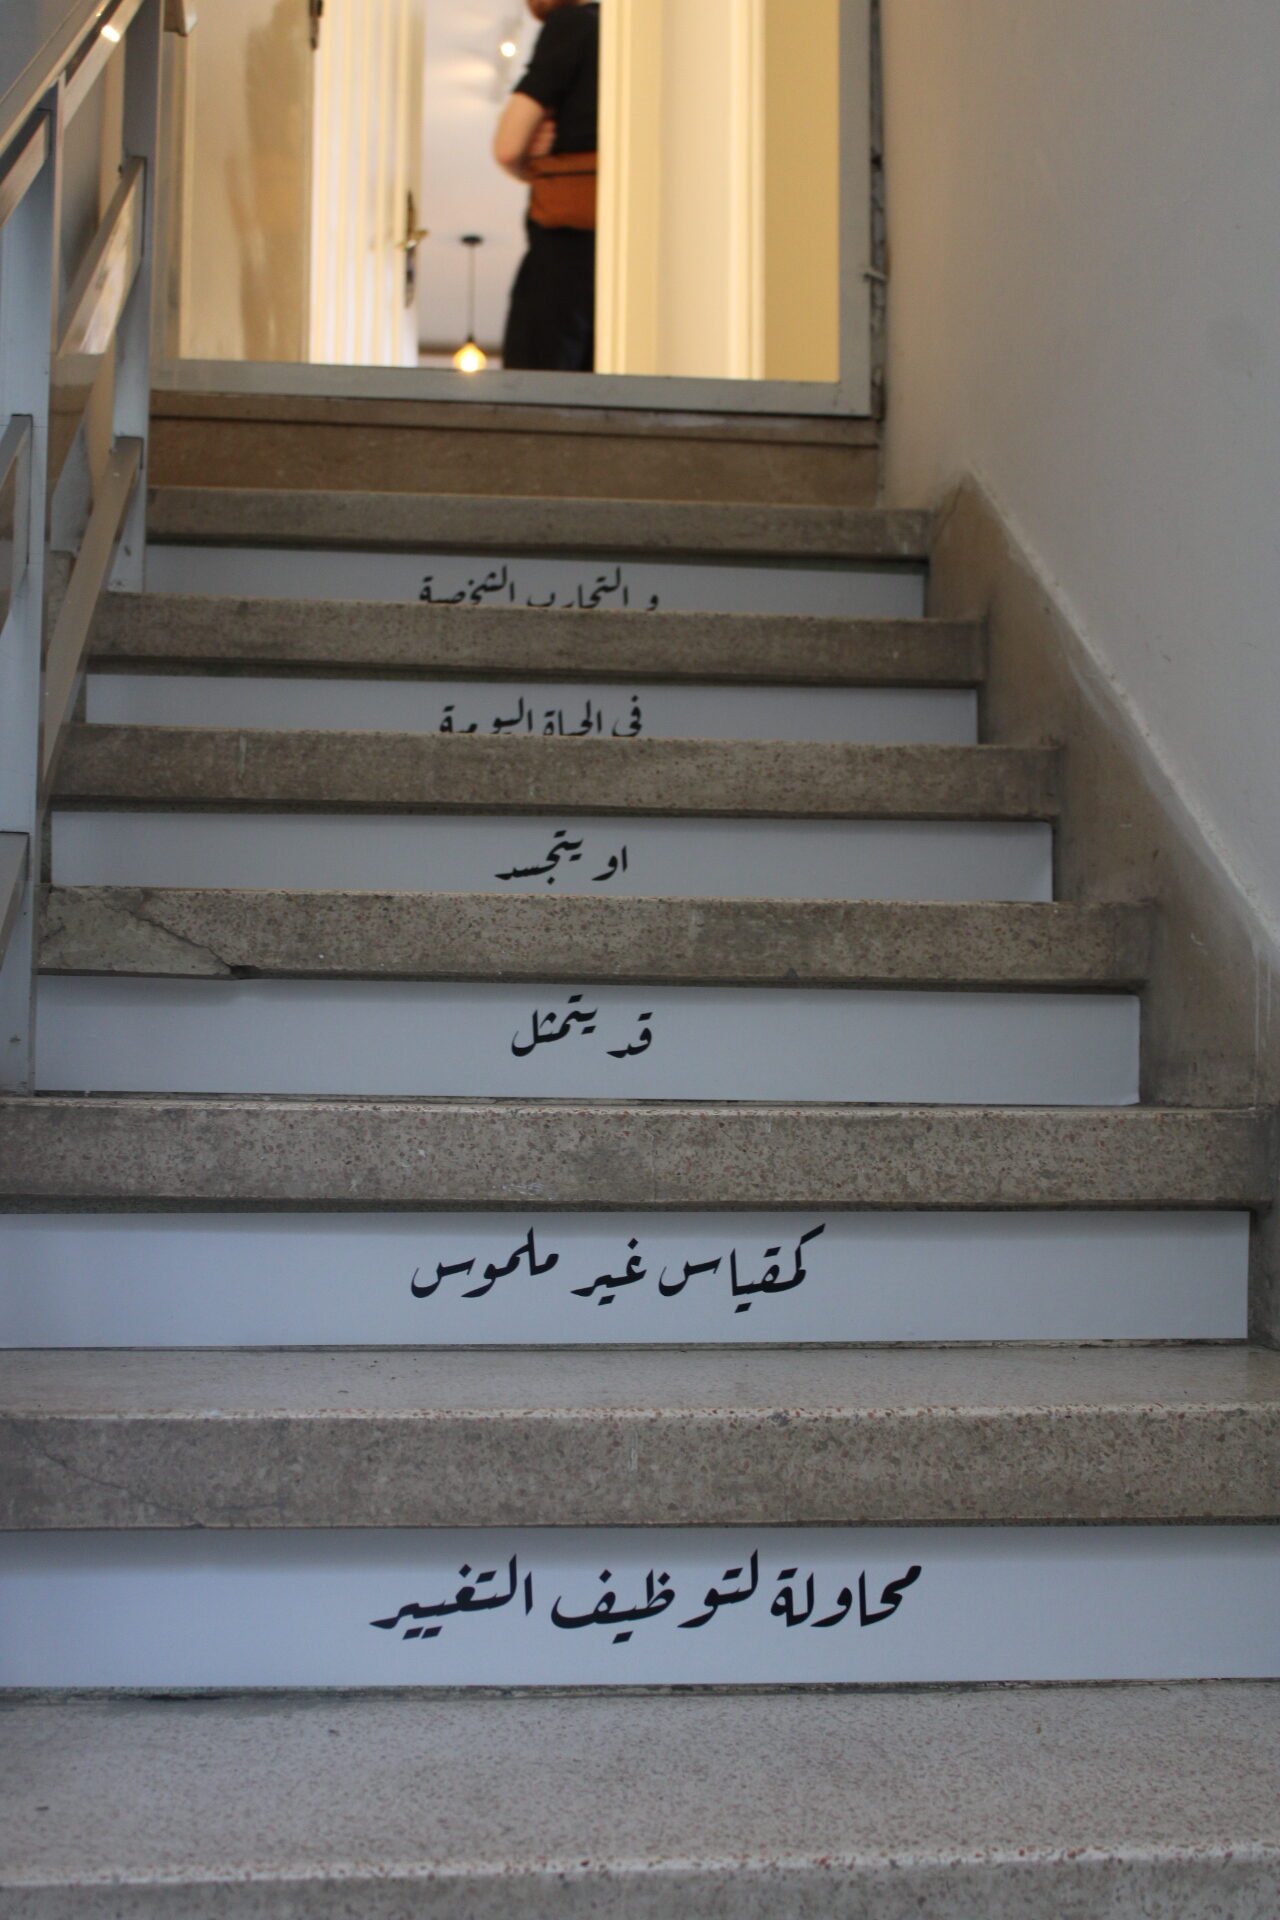 و التجارب الشخصية
في الحياة اليومية
او يتجسد
قد يتمثل
كمقياس غير ملموس
محاولة لتوظيف التغيير